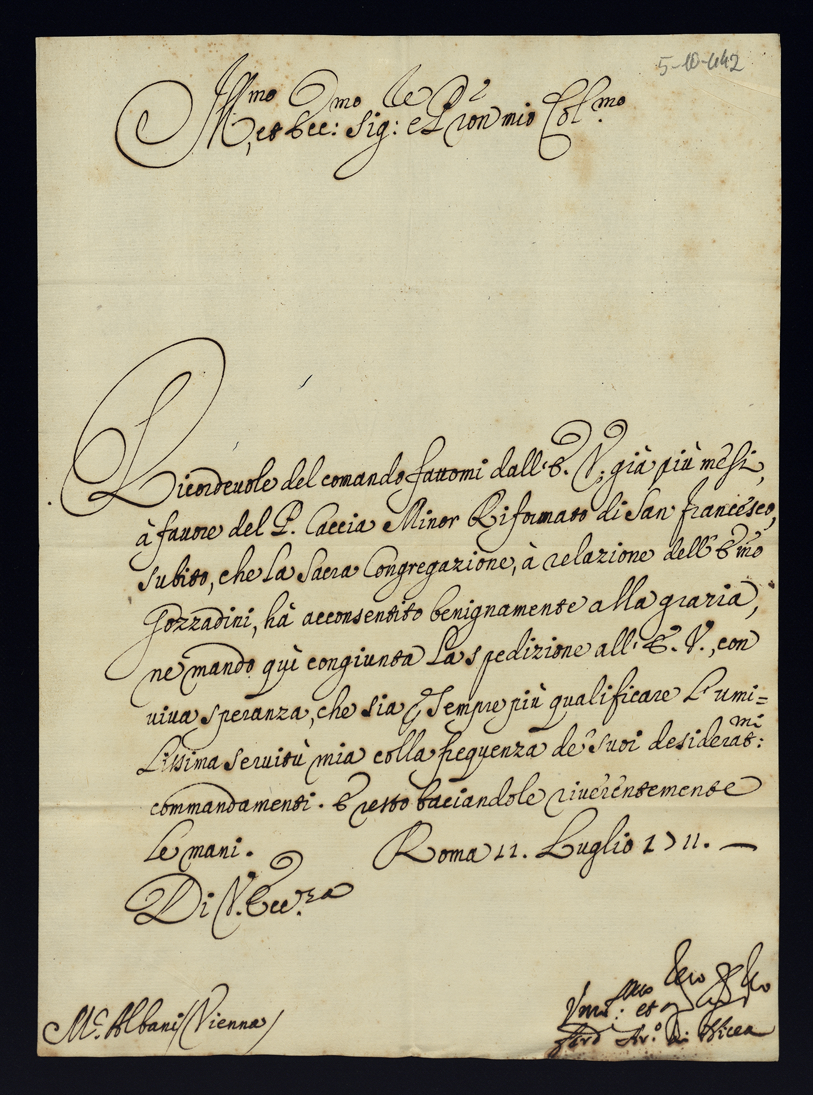 5-10-442
Ill.mo
et Ecc: Sig: e Pron mio Col.mo
Ricordevole del comando fattomi dall'E. V. già più mesi,
à favore del P. Caccia Minor Riformato di San Francesco,
subito, che la Sacra Congregazione, à relazione dell'E.mo
Gozzadini, hà acconsentito benignamente alla grazia,
ne mando quì congiunta la spedizione all'E. V., con
viva speranza, che sia sempre più qualificare l'umi=
lissima servitù mia colla frequenza de' suoi desiderat.mi:
commandamenti. E resto baciandole riverentemente
le mani. Roma 11. Luglio 1711.
Di V. Ecc.za
M.r Albani / Vienna /
Um.o: et
di Nicea